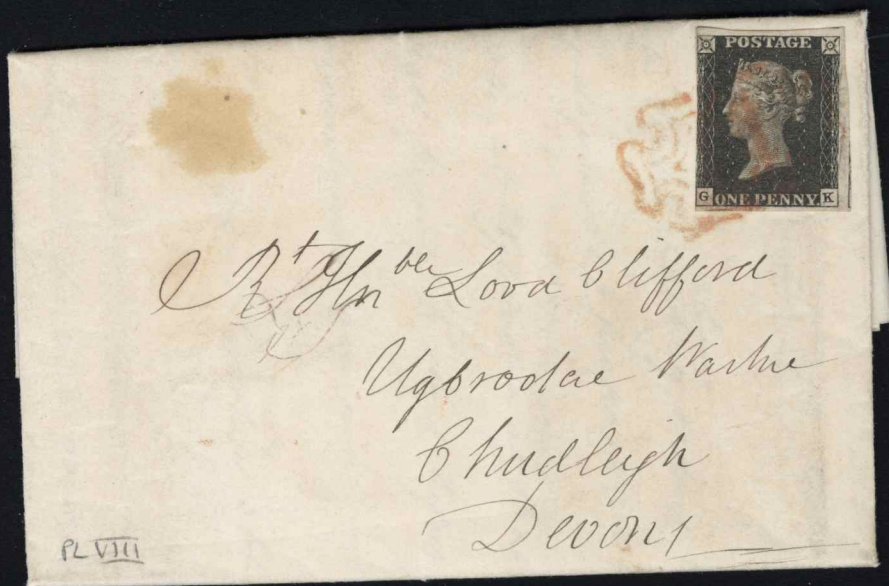 POSTAGE
G ONE PENNY. K
Rt Honble Lord Clifford
Ugbrooke Parke
Chudleigh
Devons
PL VIII